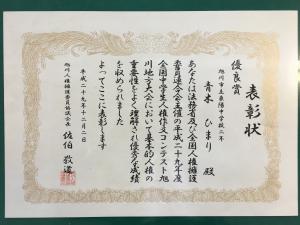 表彰状
優良賞
旭川市立東陽中学校二年
青木 ひまり 殿
あなたは法務省及び全国人権擁護
委員連合会主催の平成二十九年度
全国中学生人権作文コンテスト旭
川地方大会において基本的人権の
重要性をよく理解され優秀な成績
を収められました
よってここに表彰します
平成二十九年十二月二日
旭川人権擁護委員協議会長 佐伯